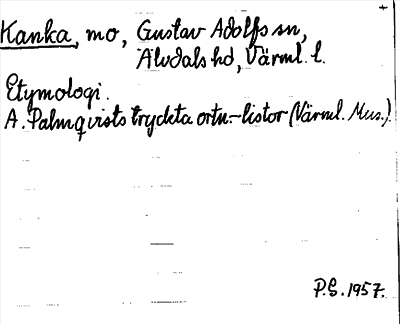 Kanka, mo, Gustav Adolfs sn,
Älvdals hd, Värml. l.
Etymologi.
A. Palmqvists tryckta ortn.-listor (Värml. Mus.).
P.S. 1957.